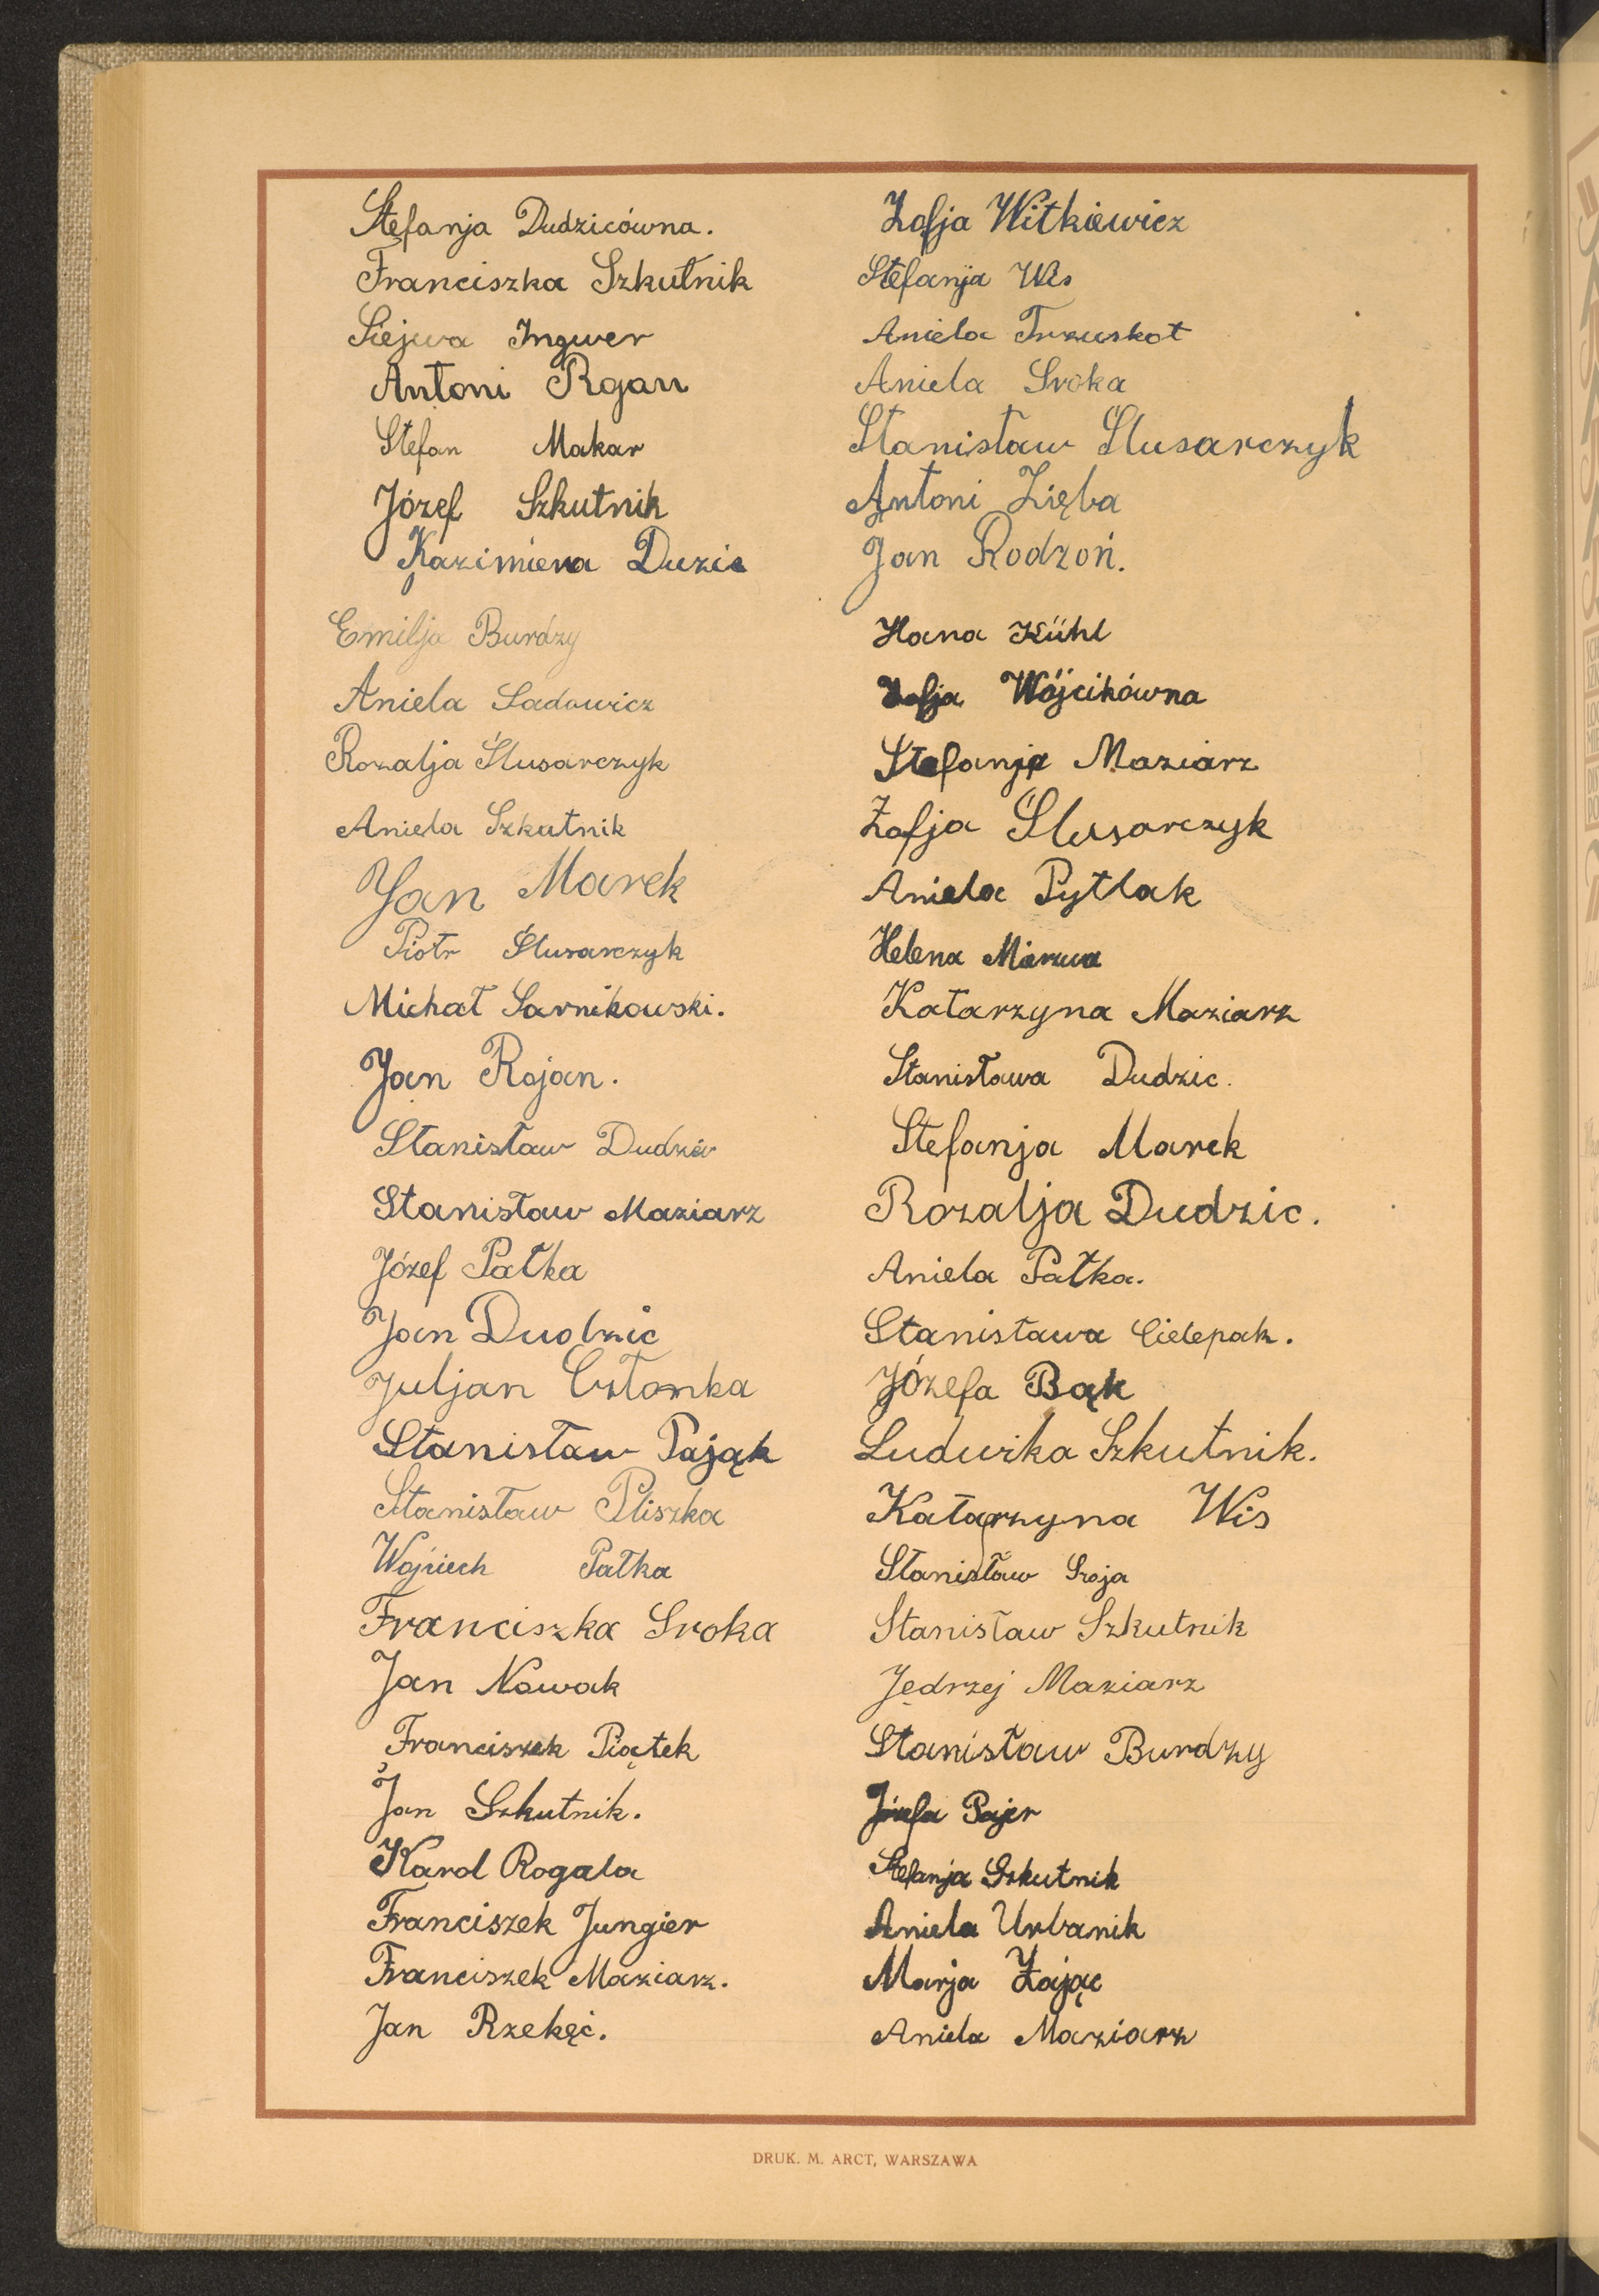 Stefanja Dudzicówna.
Franciszka Szkutnik
Siejwa Ingwer
Antoni Rgan
Stefan Makar
Józef Szkutnik
Kazimiera Duzic
Emilja Burdzy
Aniela Sadowicz
Rozalja Ślusarczyk
Aniela Szkutnik
Jan Marek
Piotr Ślusarczyk
Michał Sarnikowski.
Jan Rojan.
Stanisław Dudzic
Stanisław Maziarz
Józef Pałka
Jan Dudzic
Juljan Członka
Stanisław Pająk
Stanisław Pliszka
Wojciech Pałka
Franciszka Sroka
Jan Nowak
Franciszek Piątek
Jan Szkutnik.
Karol Rogala
Franciszek Jungier
Franciszek Maziarz.
Jan Rzekęć.
Zofja Witkiewicz
Stefanja Wis
Aniela Truskot
Aniela Sroka
Stanisław Ślusarczyk
Antoni Zięba
Jan Rodzoń.
Hana Kühl
Zofja Wójcikówna
Stefanja Maziarz
Zofja Ślusarczyk
Aniela Pytlak
Helena Marzwa
Katarzyna Maziarz
Stanisława Dudzic.
Stefanja Marek
Rozalja Dudzic.
Aniela Pałka.
Stanisława Cielepak.
Józefa Bąk
Ludwika Szkutnik.
Katarzyna Wis
Stanisław Sroja
Stanisław Szkutnik
Jędrzej Maziarz
Stanisław Burdzy
Józefa Pajer
Stefanja Szkutnik
Aniela Urbanik
Marja Zając
Aniela Maziarz
DRUK. M. ARCT, WARSZAWA